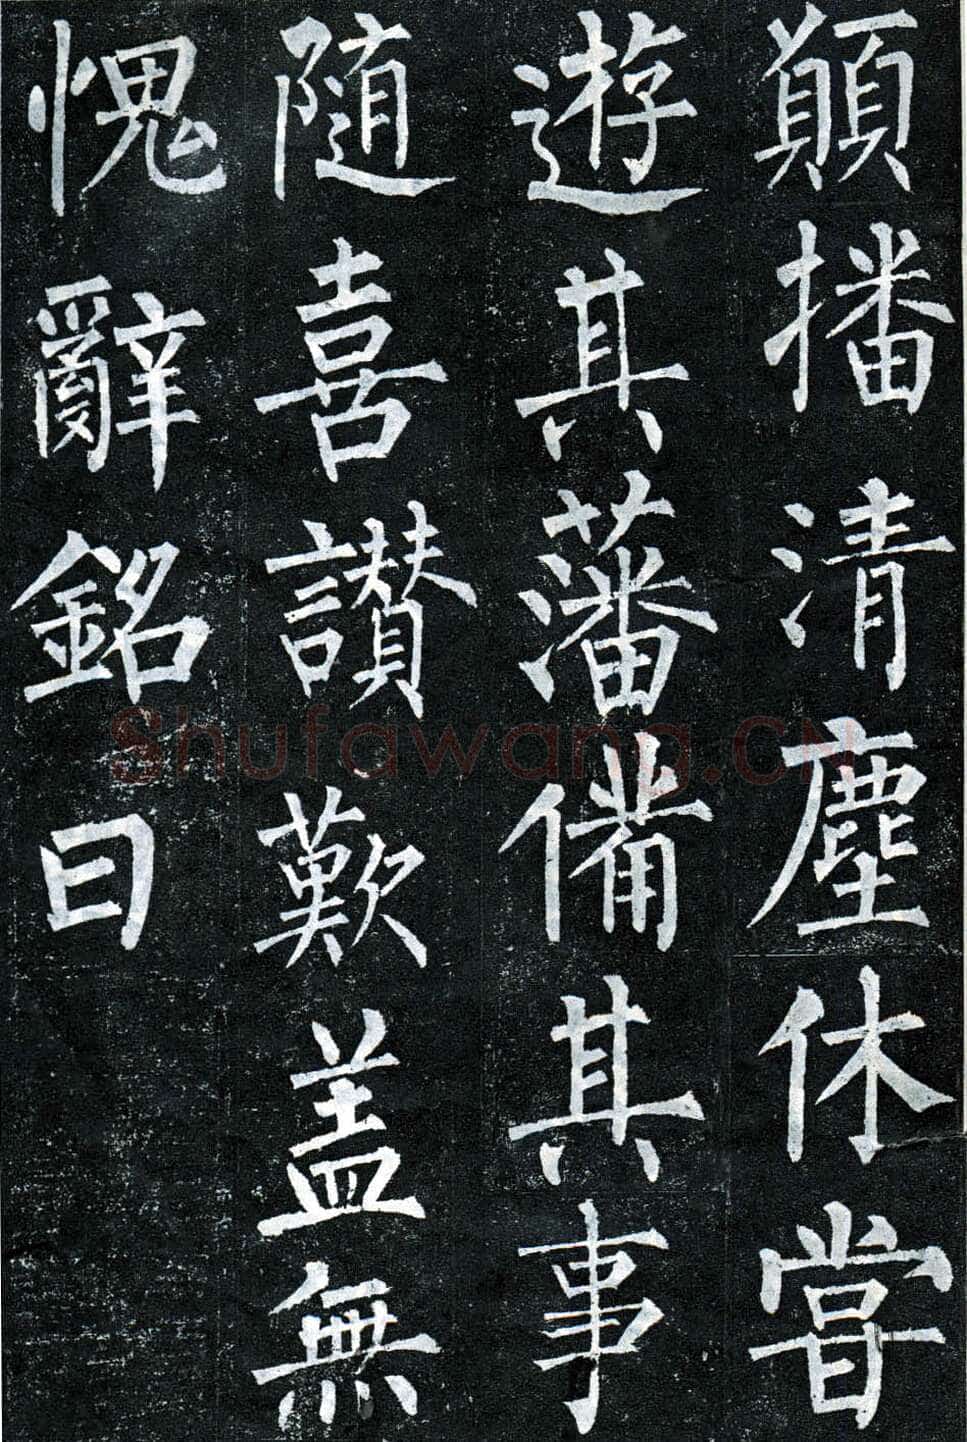 顛播清塵休嘗
遊其藩備其事
随喜讃歎盖無
愧辭銘曰
Shufawang.CN